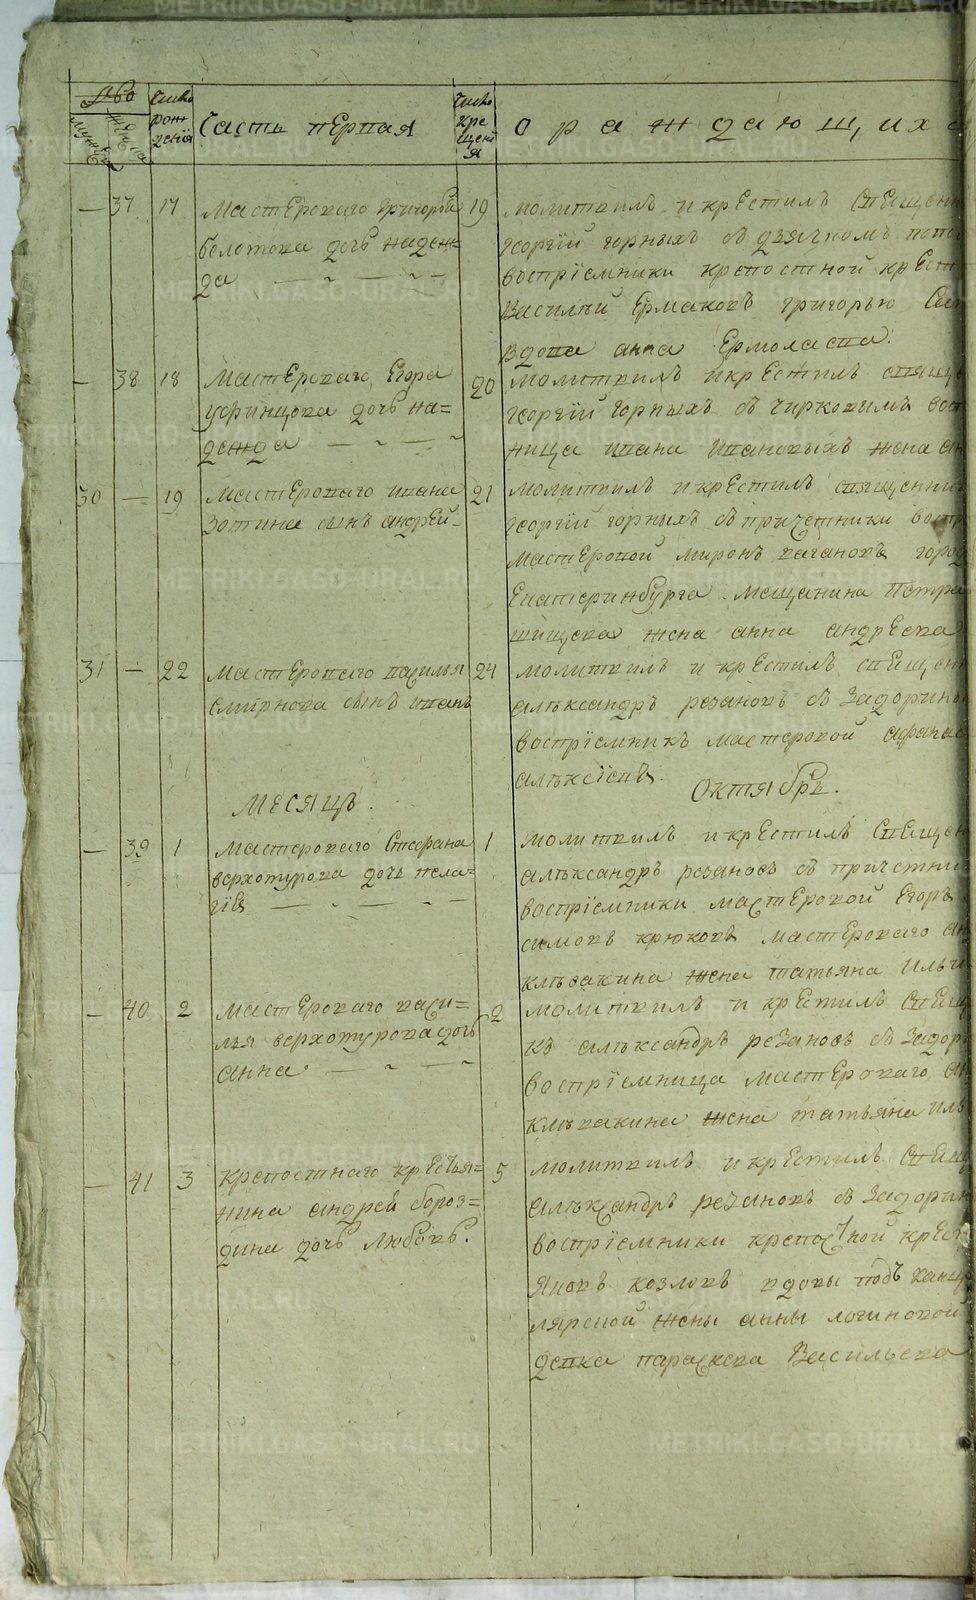 Мужеска
Женска
Число рождения
Часть первая
Число крещения
о раждающихся
37 17 Мастероваго Григорья
Болотова дочь надеж-
да
19 молитвилъ и крестилъ Священн
георгий горныхъ съ дьячкомъ попо
восприемники крепостной крест
Василий Ермаковъ григорью
вдова анна Ермолаева.
38 18 Мастероваго Егора
уфинцова дочь на=
дежда
20 молитвилъ и крестилъ священ
георгий горныхъ съ чирковымъ восп
ница ивана Ивановыхъ жена ан
30 19 Мастероваго ивана
Зотина сынъ андрей
21 молитвилъ и крестилъ священни
георгий горныхъ съ причетники воспр
мастеровой миронъ кагановъ город
Екатеринбурга мещанина Петра
жена анна андреева
31 22 мастероваго василья
смирнова сынъ иванъ
24 молитвилъ и крестилъ священ
алѣксандръ резановъ съ Задорин
воспрїемникъ мастеровой афанас
алѣксїевъ.
Месяцъ.
Октябрь.
39 1 мастероваго Стефана
верхотурова дочь пела-
гїя
1 молитвилъ и крестилъ Священ
алѣксандръ резановъ съ причетни
воспрїемники мастеровой Егоръ
симовъ крюковъ мастероваго ан
клѣвакина жена татьяна Ильи
40 2 мастероваго васи-
лья верхотурова дочь
анна
2 молитвилъ и крестилъ Свящ
къ алѣксандръ резановъ съ Задор
воспрїемница мастероваго ан
клѣвакина жена татьяна иль
41 3 крепостнаго крестья=
нина андрей бороз=
дина дочь любовь.
5 молитвилъ и крестилъ Свящ
алѣксандръ резановъ съ Задорин
воспрїемники крепостной крест
Яковъ козловъ вдовы подъ канц
лярской жены анны логиновой
девка параскева Васильева
METRIKI.GASO-URAL.RU